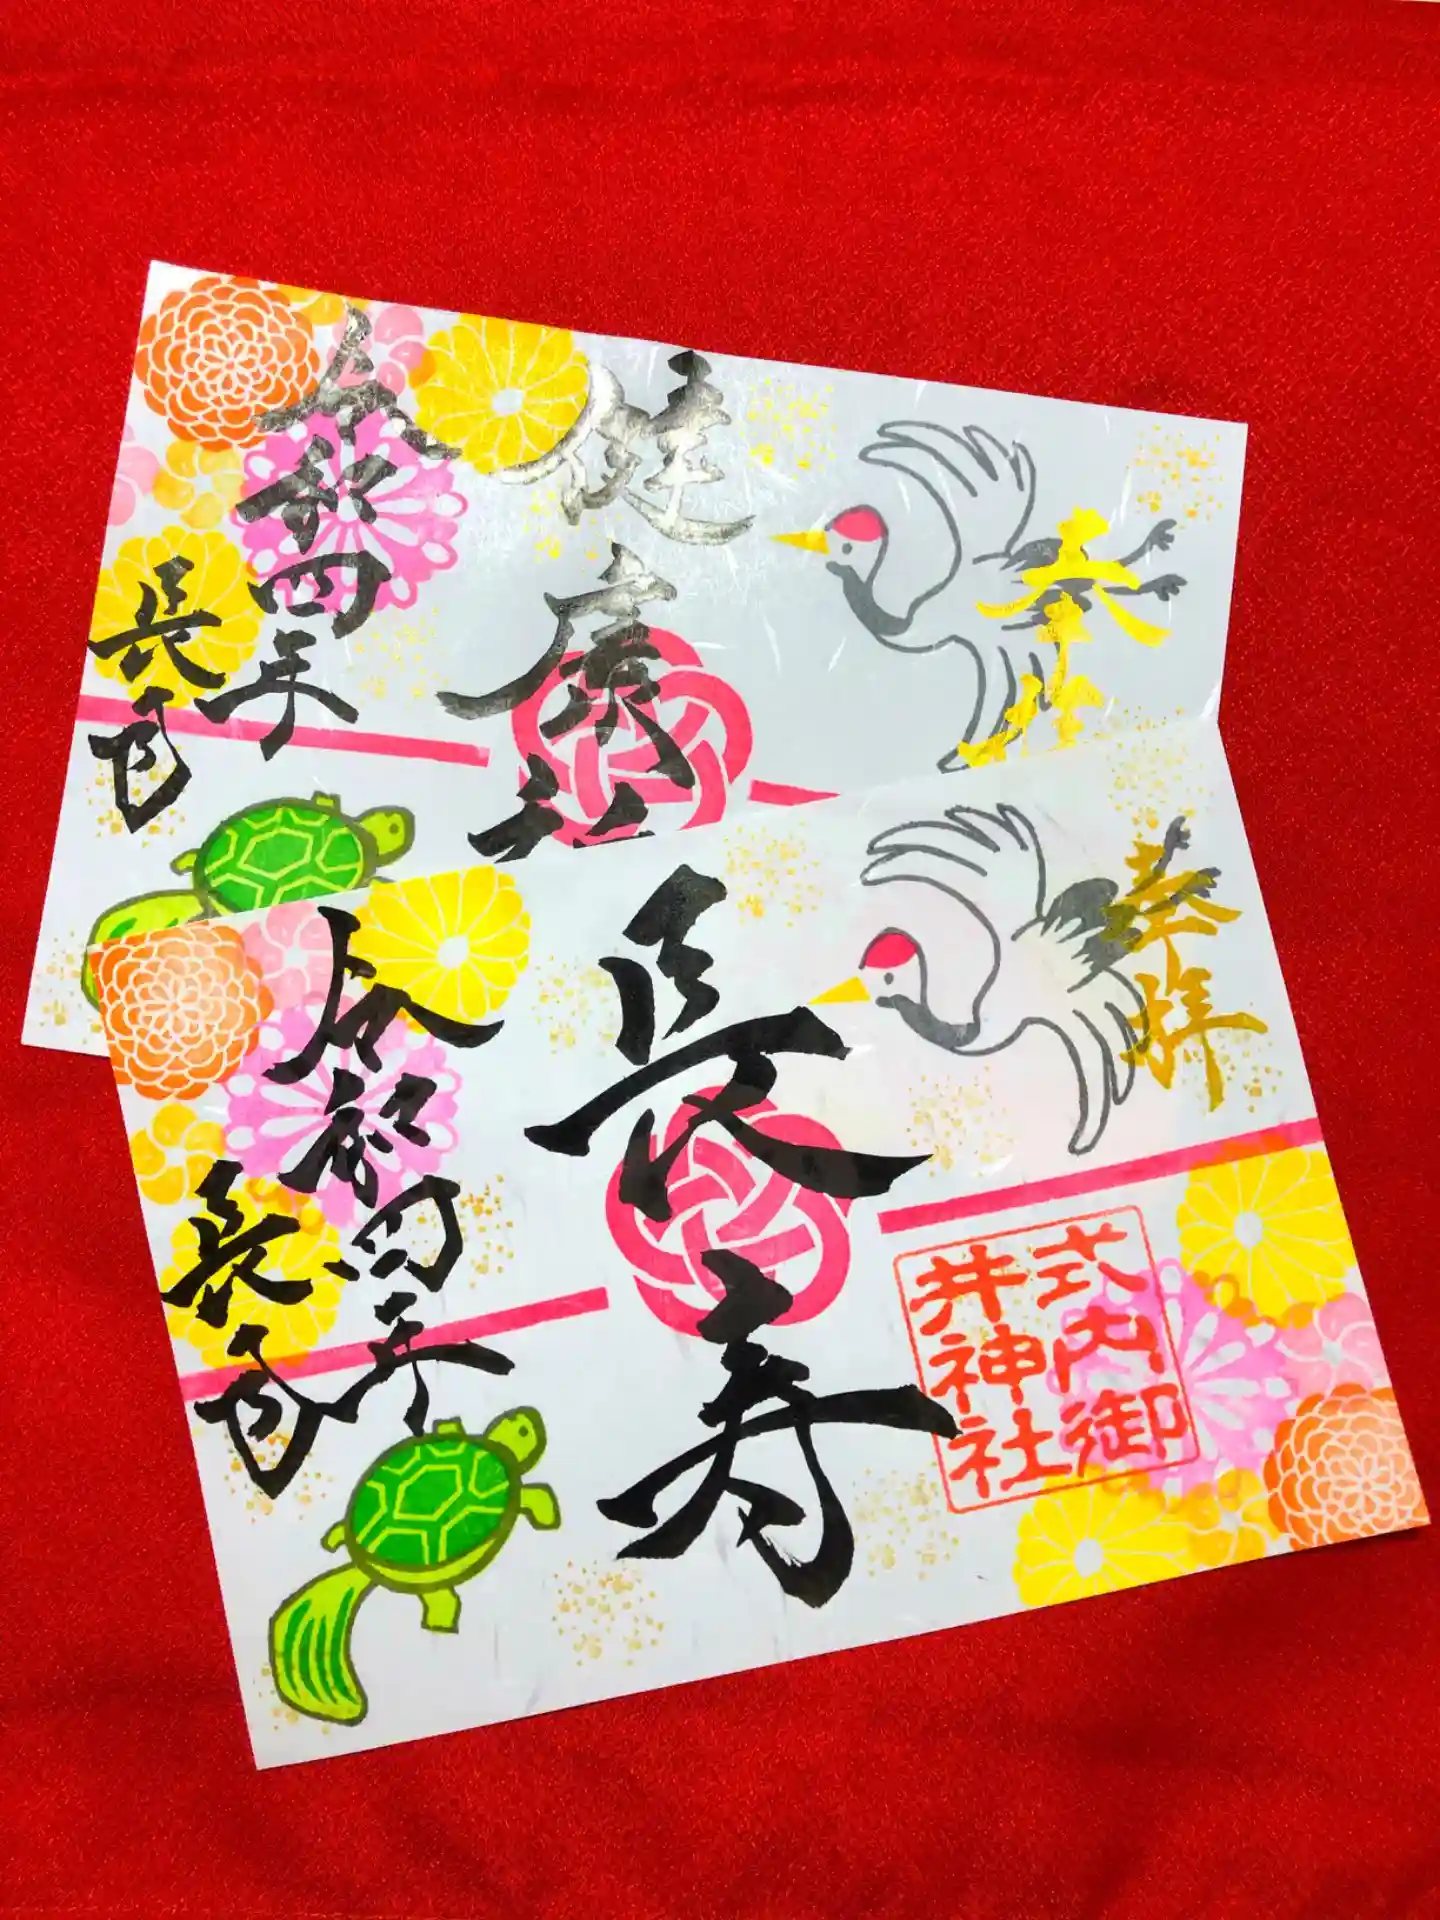 奉拝
健康祈
令和四年
長月
奉拝
式内御
井神社
長寿
令和四年
長月